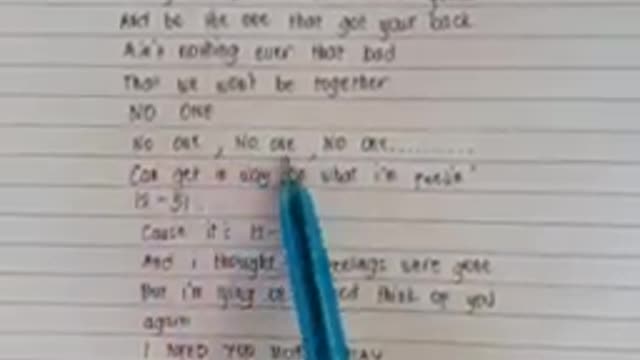 And be the one that got your back
Ain't nothing ever that bad
That we won't be together
NO ONE
No one, No one, No one..........
Can get in way what i'm feelin'
15-51.
Cause it's 15-
And i thought feelings were gone
But i'm lying on bed think of you
again
I NEED YOU